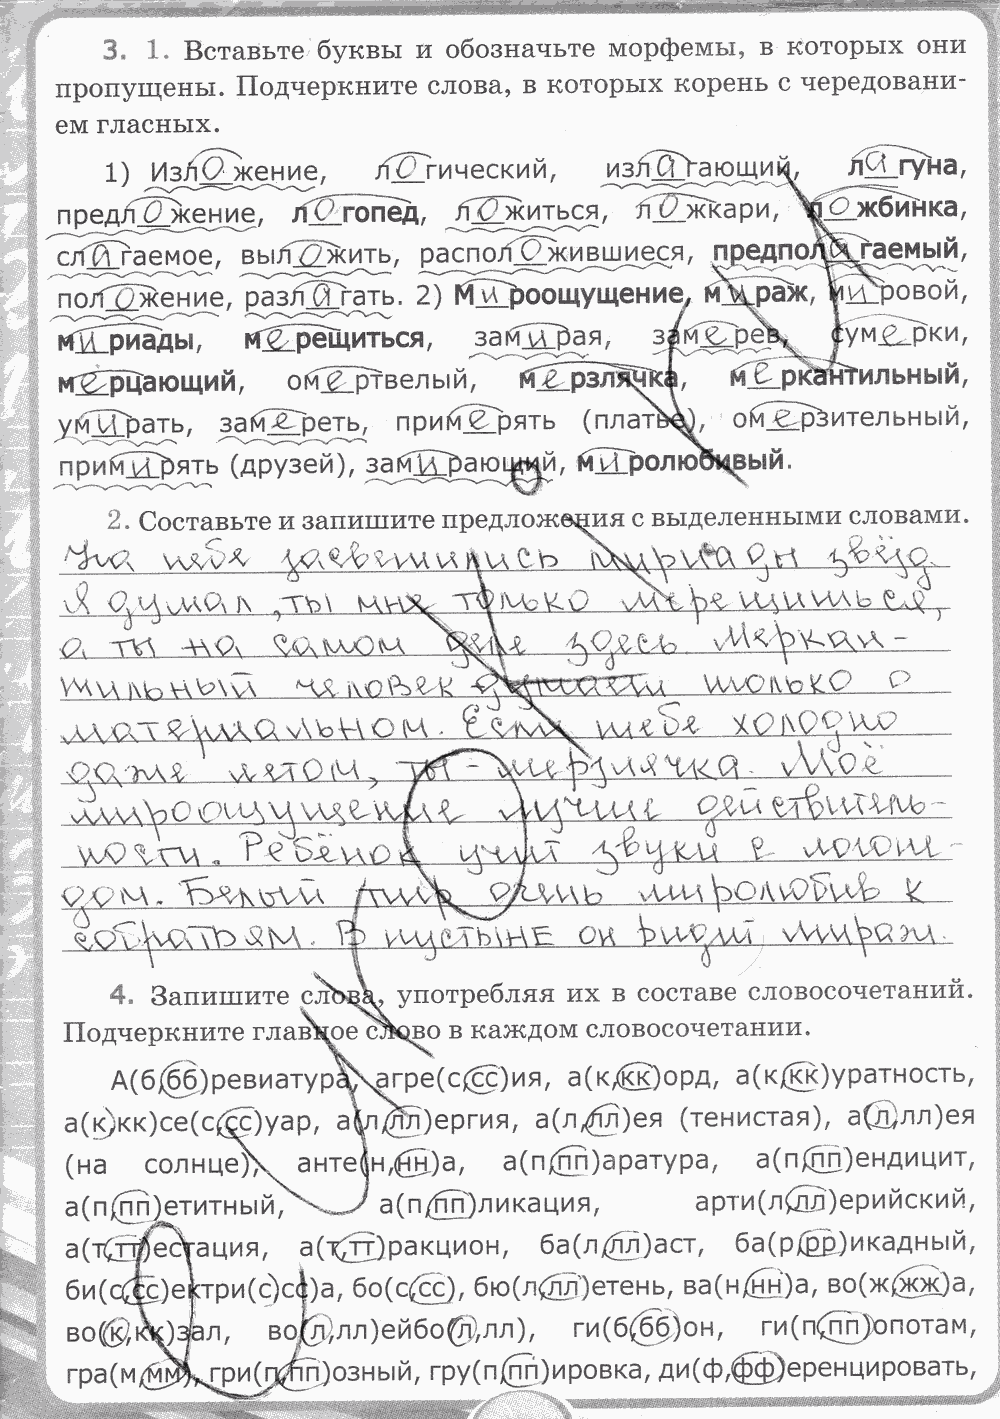 3. 1. Вставьте буквы и обозначьте морфемы, в которых они
пропущены. Подчеркните слова, в которых корень с чередовани-
ем гласных.
1) Изложение, логический, излагающий, лагуна,
предложение, логопед, ложиться, ложкари, ложбинка,
слагаемое, выложить, расположившиеся, предполагаемый,
положение, разлагать. 2) Мироощущение, мираж, мировой,
мириады, мерещиться, замирая, замерев, сумерки,
мерцающий, омертвелый, мерзлячка, меркантильный,
умирать, замереть, примерять (платье), омерзительный,
примирять (друзей), замирающий, миролюбивый.
2. Составьте и запишите предложения с выделенными словами.
На небе засветились мириады звёзд.
Я думал, ты мне только мерещишься,
а ты на самом деле здесь. Меркан-
тильный человек думает только о
материальном. Если тебе холодно
даже летом, ты - мерзлячка. Моё
мироощущение лучше действитель-
ности. Ребёнок учит звуки с логопе-
дом. Белый тигр очень миролюбив к
собратьям. В пустыне он видит мираж.
4. Запишите слова, употребляя их в составе словосочетаний.
Подчеркните главное слово в каждом словосочетании.
А(б,бб)ревиатура, агре(с,сс)ия, а(к,кк)орд, а(к,кк)уратность,
а(к,кк)се(с,сс)уар, а(л,лл)ергия, а(л,лл)ея (тенистая), а(л,лл)ея
(на солнце), анте(н,нн)а, а(п,пп)аратура, а(п,пп)ендицит,
а(п,пп)етитный, а(п,пп)ликация, арти(л,лл)ерийский,
а(т,тт)естация, а(т,тт)ракцион, ба(л,лл)аст, ба(р,рр)икадный,
би(с,сс)ектри(с,сс)а, бо(с,сс), бю(л,лл)етень, ва(н,нн)а, во(ж,жж)а,
во(к,кк)зал, во(л,лл)ейбо(л,лл), ги(б,бб)он, ги(п,пп)опотам,
гра(м,мм), гри(п,пп)озный, гру(п,пп)ировка, ди(ф,фф)еренцировать,